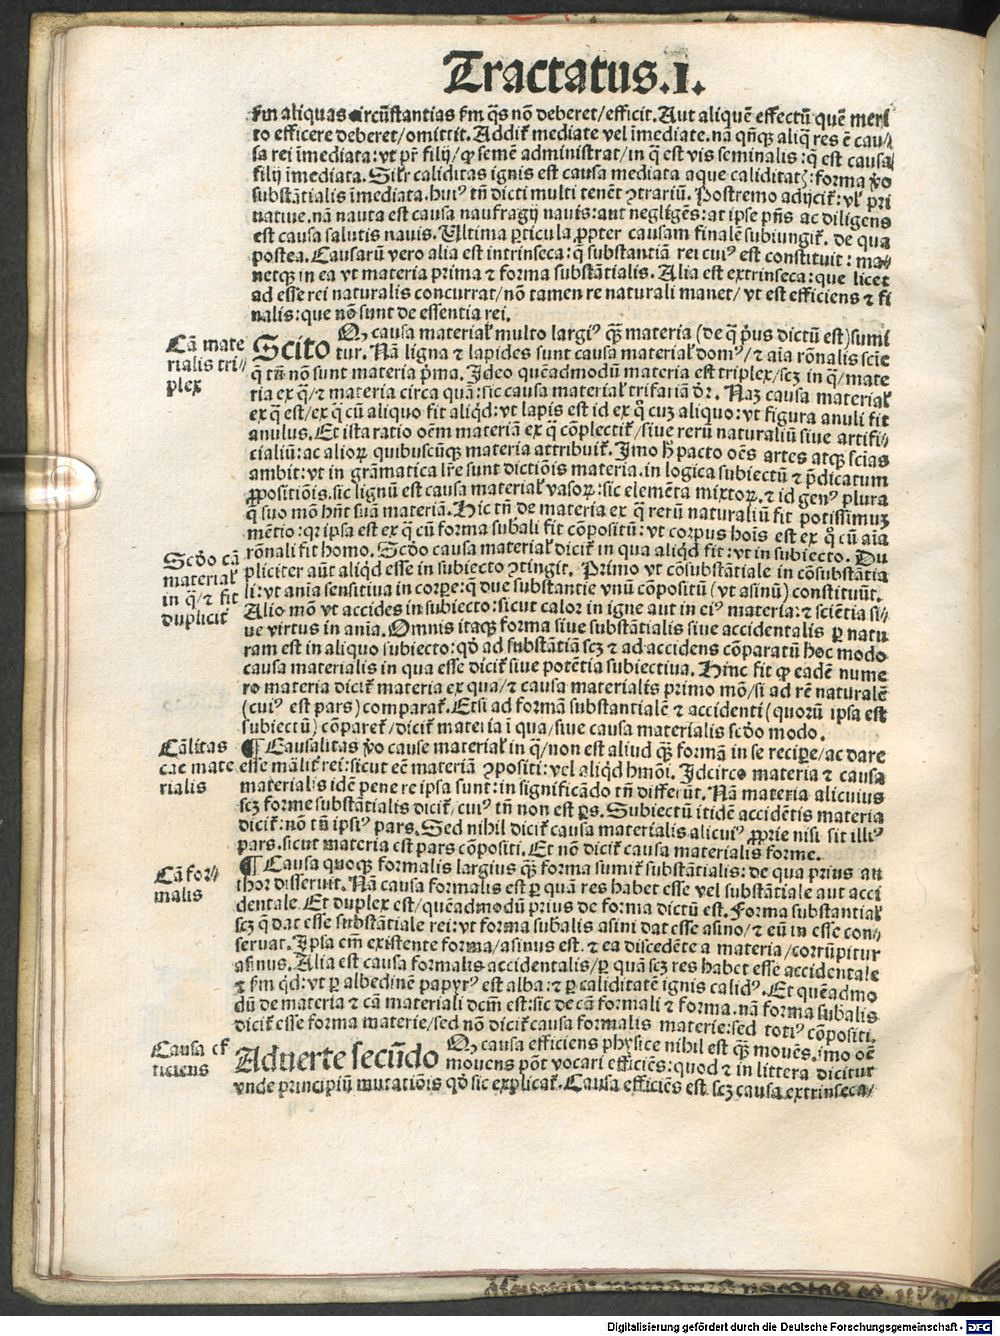 Tractatus.I.
fm aliquas circũstantias fm q̃s nõ deberet/efficit. Aut aliquẽ effectũ quẽ meri
to efficere deberet/omittit. Addit᷑ mediate vel ĩmediate. nã qñq; aliq̃ res ẽ cau/
sa rei ĩmediata: vt pr̃ filij/ qꝫ semẽ administrat/in q̃ est vis seminalis: q̃ est causa
filij ĩmediata. Sil̃r caliditas ignis est causa mediata aque caliditatꝭ: forma ṽo
substãtialis ĩmediata. hui⁹ tñ dicti multi tenẽt ꝯtrariũ. Postremo adijcit᷑: vl̃ pri
uatiue. nã nauta est causa naufragij nauis: aut negligẽs: at ipse pñs ac diligens
est causa salutis nauis. Ultima ꝑticula ꝓpter causam finalẽ subiungit᷑. de qua
postea. Causarũ vero alia est intrinseca: q̃ substantiã rei cui⁹ est constituit: ma/
netq; in ea vt materia prima ⁊ forma substãtialis. Alia est extrinseca: que licet
ad esse rei naturalis concurrat/nõ tamen re naturali manet/ vt est efficiens ⁊ fi
nalis: que nõ sunt de essentia rei.
Cã mate
rialis tri/
plex
Scito Qꝫ causa material᷑ multo largi⁹ q̃ꝫ materia (de q̃ p̃us dictũ est) sumi
tur. Nã ligna ⁊ lapides sunt causa material᷑ dom⁹/⁊ aĩa rõnalis sciẽ
q̃ tñ nõ sunt materia p̃ma. Ideo quẽadmodũ materia est triplex/scꝫ in q̃/mate
ria ex q̃/⁊ materia circa quã: sic causa material᷑ trifariã dr̃. Naꝫ causa material᷑
ex q̃ est/ex q̃ cũ aliquo fit aliq̃d: vt lapis est id ex q̊ cuꝫ aliquo: vt figura anuli fit
anulus. Et ista ratio oẽm materiã ex q̃ cõplectit᷑/siue rerũ naturaliũ siue artifi/
cialiũ: ac alioꝝ quibuscũq; materia attribuit᷑. Imo h̃ pacto oẽs artes atq; sciẽas
ambit: vt in grãmatica lr̃e sunt dictiõis materia. in logica subiectũ ⁊ p̃dicatum
ꝓpositiõis. sic lignũ est causa material᷑ vasoꝝ: sic elemẽta mixtoꝝ. ⁊ id gen⁹ plura
q̃ suo mõ hñt suã materiã. Hic tñ de materia ex q̃ rerũ naturaliũ fit potissimuꝫ
mẽtio: qꝛ ipsa est ex q̃ cũ forma sub̃ali fit cõpositũ: vt corpus hoĩs est ex q̊ cũ aĩa
rõnali fit homo. Scd̃o causa material᷑ dicit᷑ in qua aliq̃d fit: vt in subiecto. Du
Scd̃o cã
material᷑
in q̃/⁊ fit
duplicit᷑
pliciter aũt aliq̃d esse in subiecto ꝯtingit. Primo vt cõsubstãtiale in cõsubstãtia
li: vt anĩa sensitiua in corꝑe: q̃ due substantie vnũ cõpositũ (vt asinũ) constituũt.
Alio mõ vt accidẽs in subiecto: sicut calor in igne aut in ei⁹ materia: ⁊ sciẽtia si/
ue virtus in anĩa. Omnis itaq; forma siue substãtialis siue accidentalis ꝑ natu
ram est in aliquo subiecto: qd̃ ad substãtiã scꝫ ⁊ ad accidens cõparatũ hoc modo
causa materialis in qua esse dicit᷑ siue potẽtia subiectiua. Hinc fit qꝫ eadẽ nume
ro materia dicit᷑ materia ex qua/⁊ causa materialis primo mõ/si ad rẽ naturalẽ
(cui⁹ est pars) comparat᷑. Etsi ad formã substantialẽ ⁊ accidenti (quorũ ipsa est
subiectũ) cõparet᷑/dicit᷑ materia ĩ qua/siue causa materialis scd̃o modo.
Cãlitas
cãe mate
rialis
¶ Causalitas ṽo cause material᷑ in q̃/non est aliud q̃ꝫ formã in se reciꝑe/ac dare
esse mãlit᷑ rei: sicut eẽ materiã ꝯpositi: vel aliq̃d hmõi. Idcirco materia ⁊ causa
materialis idẽ pene re ipsa sunt: in significãdo tñ differũt. Nã materia alicuius
scꝫ forme substãtialis dicit᷑/cui⁹ tñ non est ꝑs. Subiectũ itidẽ accidẽtis materia
dicit᷑: nõ tñ ipsi⁹ pars. Sed nihil dicit᷑ causa materialis alicui⁹ ꝓprie nisi sit illi⁹
pars. sicut materia est pars cõpositi. Et nõ dicit᷑ causa materialis forme.
Cã for/
malis
¶ Causa quoq; formalis largius q̃ꝫ forma sumit᷑ substãtialis: de qua prius au
thor disseruit. Nã causa formalis est ꝑ quã res habet esse vel substãtiale aut acci
dentale. Et duplex est/quẽadmodũ prius de forma dictũ est. Forma substantial᷑
scꝫ q̃ dat esse substãtiale rei: vt forma sub̃alis asini dat esse asino/⁊ eũ in esse con/
seruat. Ipsa em̃ existente forma/asinus est. ⁊ ea discedẽte a materia/corrũpitur
asinus. Alia est causa formalis accidentalis/ꝑ quã scꝫ res habet esse accidentale
⁊ fm q̃d: vt ꝑ albedinẽ papyr⁹ est alba: ⁊ ꝑ caliditatẽ ignis calid⁹. Et quẽadmo
dũ de materia ⁊ cã materiali dcm̃ est: sic de cã formali ⁊ forma. nã forma sub̃alis
dicit᷑ esse forma materie/sed nõ dicit᷑ causa formalis materie: sed toti⁹ cõpositi.
Causa ef
ficiens
Aduerte secũdo Qꝫ causa efficiens physice nihil est q̃ꝫ mouẽs. imo oẽ
mouens põt vocari efficiẽs: quod ⁊ in littera dicitur
vnde principiũ mutatiõis qd̃ sic explicat᷑. Causa efficiẽs est scꝫ causa extrinseca/
Digitalisierung gefördert durch die Deutsche Forschungsgemeinschaft - DFG